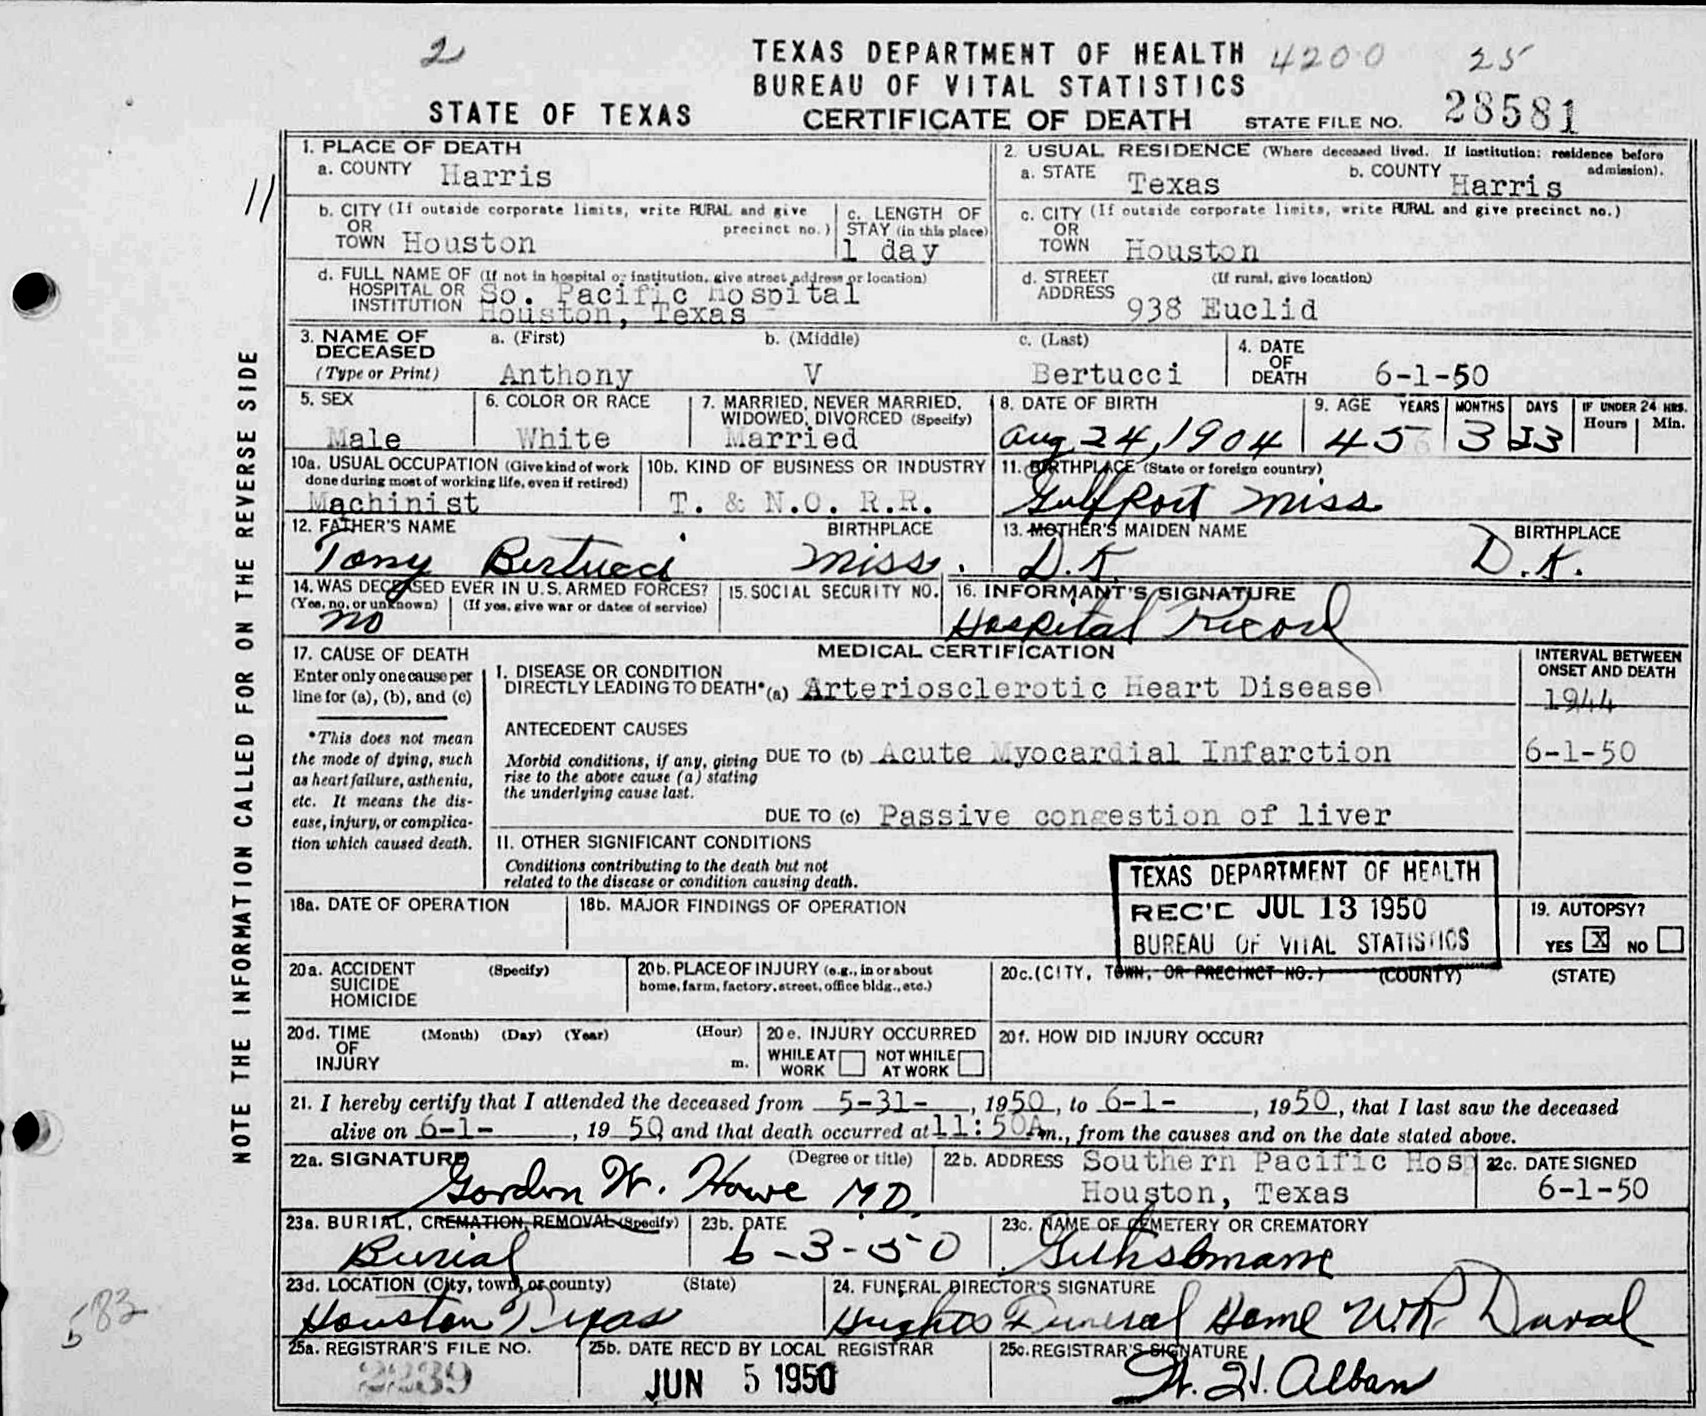 2
TEXAS DEPARTMENT OF HEALTH 4200 25
BUREAU OF VITAL STATISTICS
STATE OF TEXAS CERTIFICATE OF DEATH STATE FILE NO. 28581
11
NOTE THE INFORMATION CALLED FOR ON THE REVERSE SIDE
1. PLACE OF DEATH
a. COUNTY Harris
2. USUAL RESIDENCE (Where deceased lived. If institution: residence before admission).
a. STATE Texas b. COUNTY Harris
b. CITY (If outside corporate limits, write RURAL and give precinct no.)
OR
TOWN Houston
c. LENGTH OF
STAY (in this place)
1 day
c. CITY (If outside corporate limits, write RURAL and give precinct no.)
OR
TOWN Houston
d. FULL NAME OF (If not in hospital or institution, give street address or location)
HOSPITAL OR
INSTITUTION So. Pacific Hospital
Houston, Texas
d. STREET (If rural, give location)
ADDRESS 938 Euclid
3. NAME OF DECEASED (Type or Print)
a. (First) b. (Middle) c. (Last)
Anthony V Bertucci
4. DATE OF DEATH 6-1-50
5. SEX
Male
6. COLOR OR RACE
White
7. MARRIED, NEVER MARRIED,
WIDOWED, DIVORCED (Specify)
Married
8. DATE OF BIRTH
Aug 24, 1904
9. AGE YEARS MONTHS DAYS IF UNDER 24 HRS.
Hours Min.
45 3
10a. USUAL OCCUPATION (Give kind of work
done during most of working life, even if retired)
Machinist
10b. KIND OF BUSINESS OR INDUSTRY
T. & N.O. R.R.
11. BIRTHPLACE (State or foreign country)
Gulfport Miss
12. FATHER'S NAME BIRTHPLACE
Tony Bertucci Miss.
13. MOTHER'S MAIDEN NAME BIRTHPLACE
D.K. D.K.
14. WAS DECEASED EVER IN U.S. ARMED FORCES?
(Yes, no, or unknown) (If yes, give war or dates of service)
no
15. SOCIAL SECURITY NO.
16. INFORMANT'S SIGNATURE
Hospital Record
MEDICAL CERTIFICATION
17. CAUSE OF DEATH
Enter only one cause per
line for (a), (b), and (c)
*This does not mean
the mode of dying, such
as heart failure, asthenia,
etc. It means the dis-
ease, injury, or complica-
tion which caused death.
I. DISEASE OR CONDITION
DIRECTLY LEADING TO DEATH* (a) Arteriosclerotic Heart Disease
INTERVAL BETWEEN
ONSET AND DEATH
1944
ANTECEDENT CAUSES
Morbid conditions, if any, giving
rise to the above cause (a) stating
the underlying cause last.
DUE TO (b) Acute Myocardial Infarction 6-1-50
DUE TO (c) Passive congestion of liver
II. OTHER SIGNIFICANT CONDITIONS
Conditions contributing to the death but not
related to the disease or condition causing death.
TEXAS DEPARTMENT OF HEALTH
REC'D JUL 13 1950
BUREAU OF VITAL STATISTICS
18a. DATE OF OPERATION
18b. MAJOR FINDINGS OF OPERATION
19. AUTOPSY?
YES X NO
20a. ACCIDENT (Specify)
SUICIDE
HOMICIDE
20b. PLACE OF INJURY (e.g., in or about
home, farm, factory, street, office bldg., etc.)
20c. (CITY, TOWN, OR PRECINCT NO.) (COUNTY) (STATE)
20d. TIME (Month) (Day) (Year) (Hour)
OF
INJURY m.
20e. INJURY OCCURRED
WHILE AT WORK NOT WHILE AT WORK
20f. HOW DID INJURY OCCUR?
21. I hereby certify that I attended the deceased from 5-31-, 1950, to 6-1-, 1950, that I last saw the deceased
alive on 6-1-, 1950 and that death occurred at 11:50A m., from the causes and on the date stated above.
22a. SIGNATURE (Degree or title)
Gordon W. Howe M.D.
22b. ADDRESS Southern Pacific Hosp
Houston, Texas
22c. DATE SIGNED
6-1-50
23a. BURIAL, CREMATION, REMOVAL (Specify)
Burial
23b. DATE
6-3-50
23c. NAME OF CEMETERY OR CREMATORY
23d. LOCATION (City, town, or county) (State)
Houston Texas
24. FUNERAL DIRECTOR'S SIGNATURE
Hughes Funeral Home W.R.
583
25a. REGISTRAR'S FILE NO.
2239
25b. DATE REC'D BY LOCAL REGISTRAR
JUN 5 1950
25c. REGISTRAR'S SIGNATURE
W. H. Alban